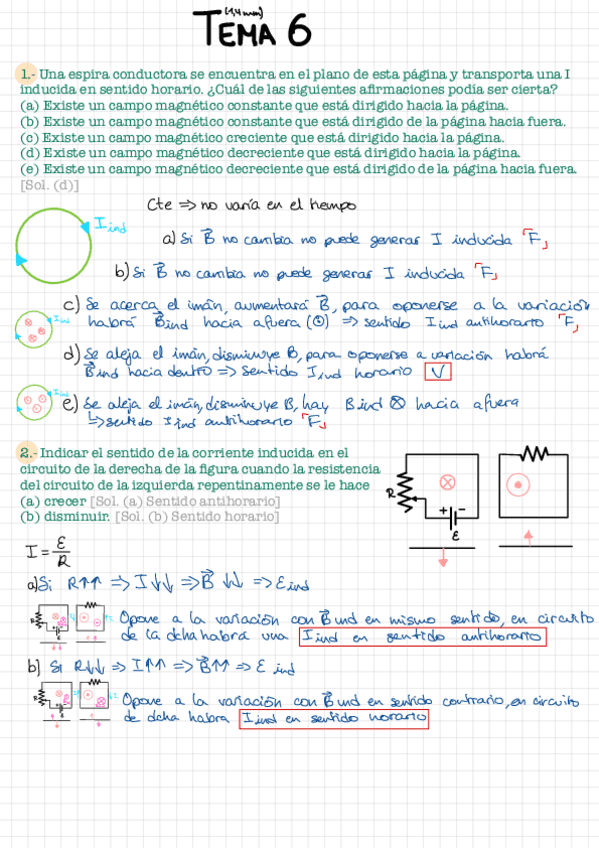 (1,4 mm)
TEMA 6
1.- Una espira conductora se encuentra en el plano de esta página y transporta una I
inducida en sentido horario. ¿Cuál de las siguientes afirmaciones podía ser cierta?
(a) Existe un campo magnético constante que está dirigido hacia la página.
(b) Existe un campo magnético constante que está dirigido de la página hacia fuera.
(c) Existe un campo magnético creciente que está dirigido hacia la página.
(d) Existe un campo magnético decreciente que está dirigido hacia la página.
(e) Existe un campo magnético decreciente que está dirigido de la página hacia fuera.
[Sol. (d)]
Cte ⇒ no varía en el tiempo
I ind
a) Si B⃗ no cambia no puede generar I inducida "F"
b) Si B⃗ no cambia no puede generar I inducida "F"
c) Se acerca el imán, aumentará B⃗, para oponerse a la variación
habrá B⃗ind hacia afuera (⊙) ⇒ sentido Iind antihorario "F"
I ind
d) Se aleja el imán, disminuye B, para oponerse a variación habrá
B⃗ind hacia dentro ⇒ sentido Iind horario V
I ind
e) Se aleja el imán, disminuye B, hay Bind ⊗ hacia afuera
↳ sentido Iind antihorario "F"
2.- Indicar el sentido de la corriente inducida en el
circuito de la derecha de la figura cuando la resistencia
del circuito de la izquierda repentinamente se le hace
(a) crecer [Sol. (a) Sentido antihorario]
(b) disminuir. [Sol. (b) Sentido horario]
R
+ -
ε
I = ε/R
a) Si R↑↑ ⇒ I↓↓ ⇒ B⃗ ↓↓ ⇒ ε ind
R
ε
Opone a la variación con B⃗ ind en mismo sentido, en circuito
de la dcha habrá una I ind en sentido antihorario
b) Si R↓↓ ⇒ I↑↑ ⇒ B⃗↑↑ ⇒ ε ind
R
ε
Opone a la variación con B⃗ ind en sentido contrario, en circuito
de dcha habra I ind en sentido horario